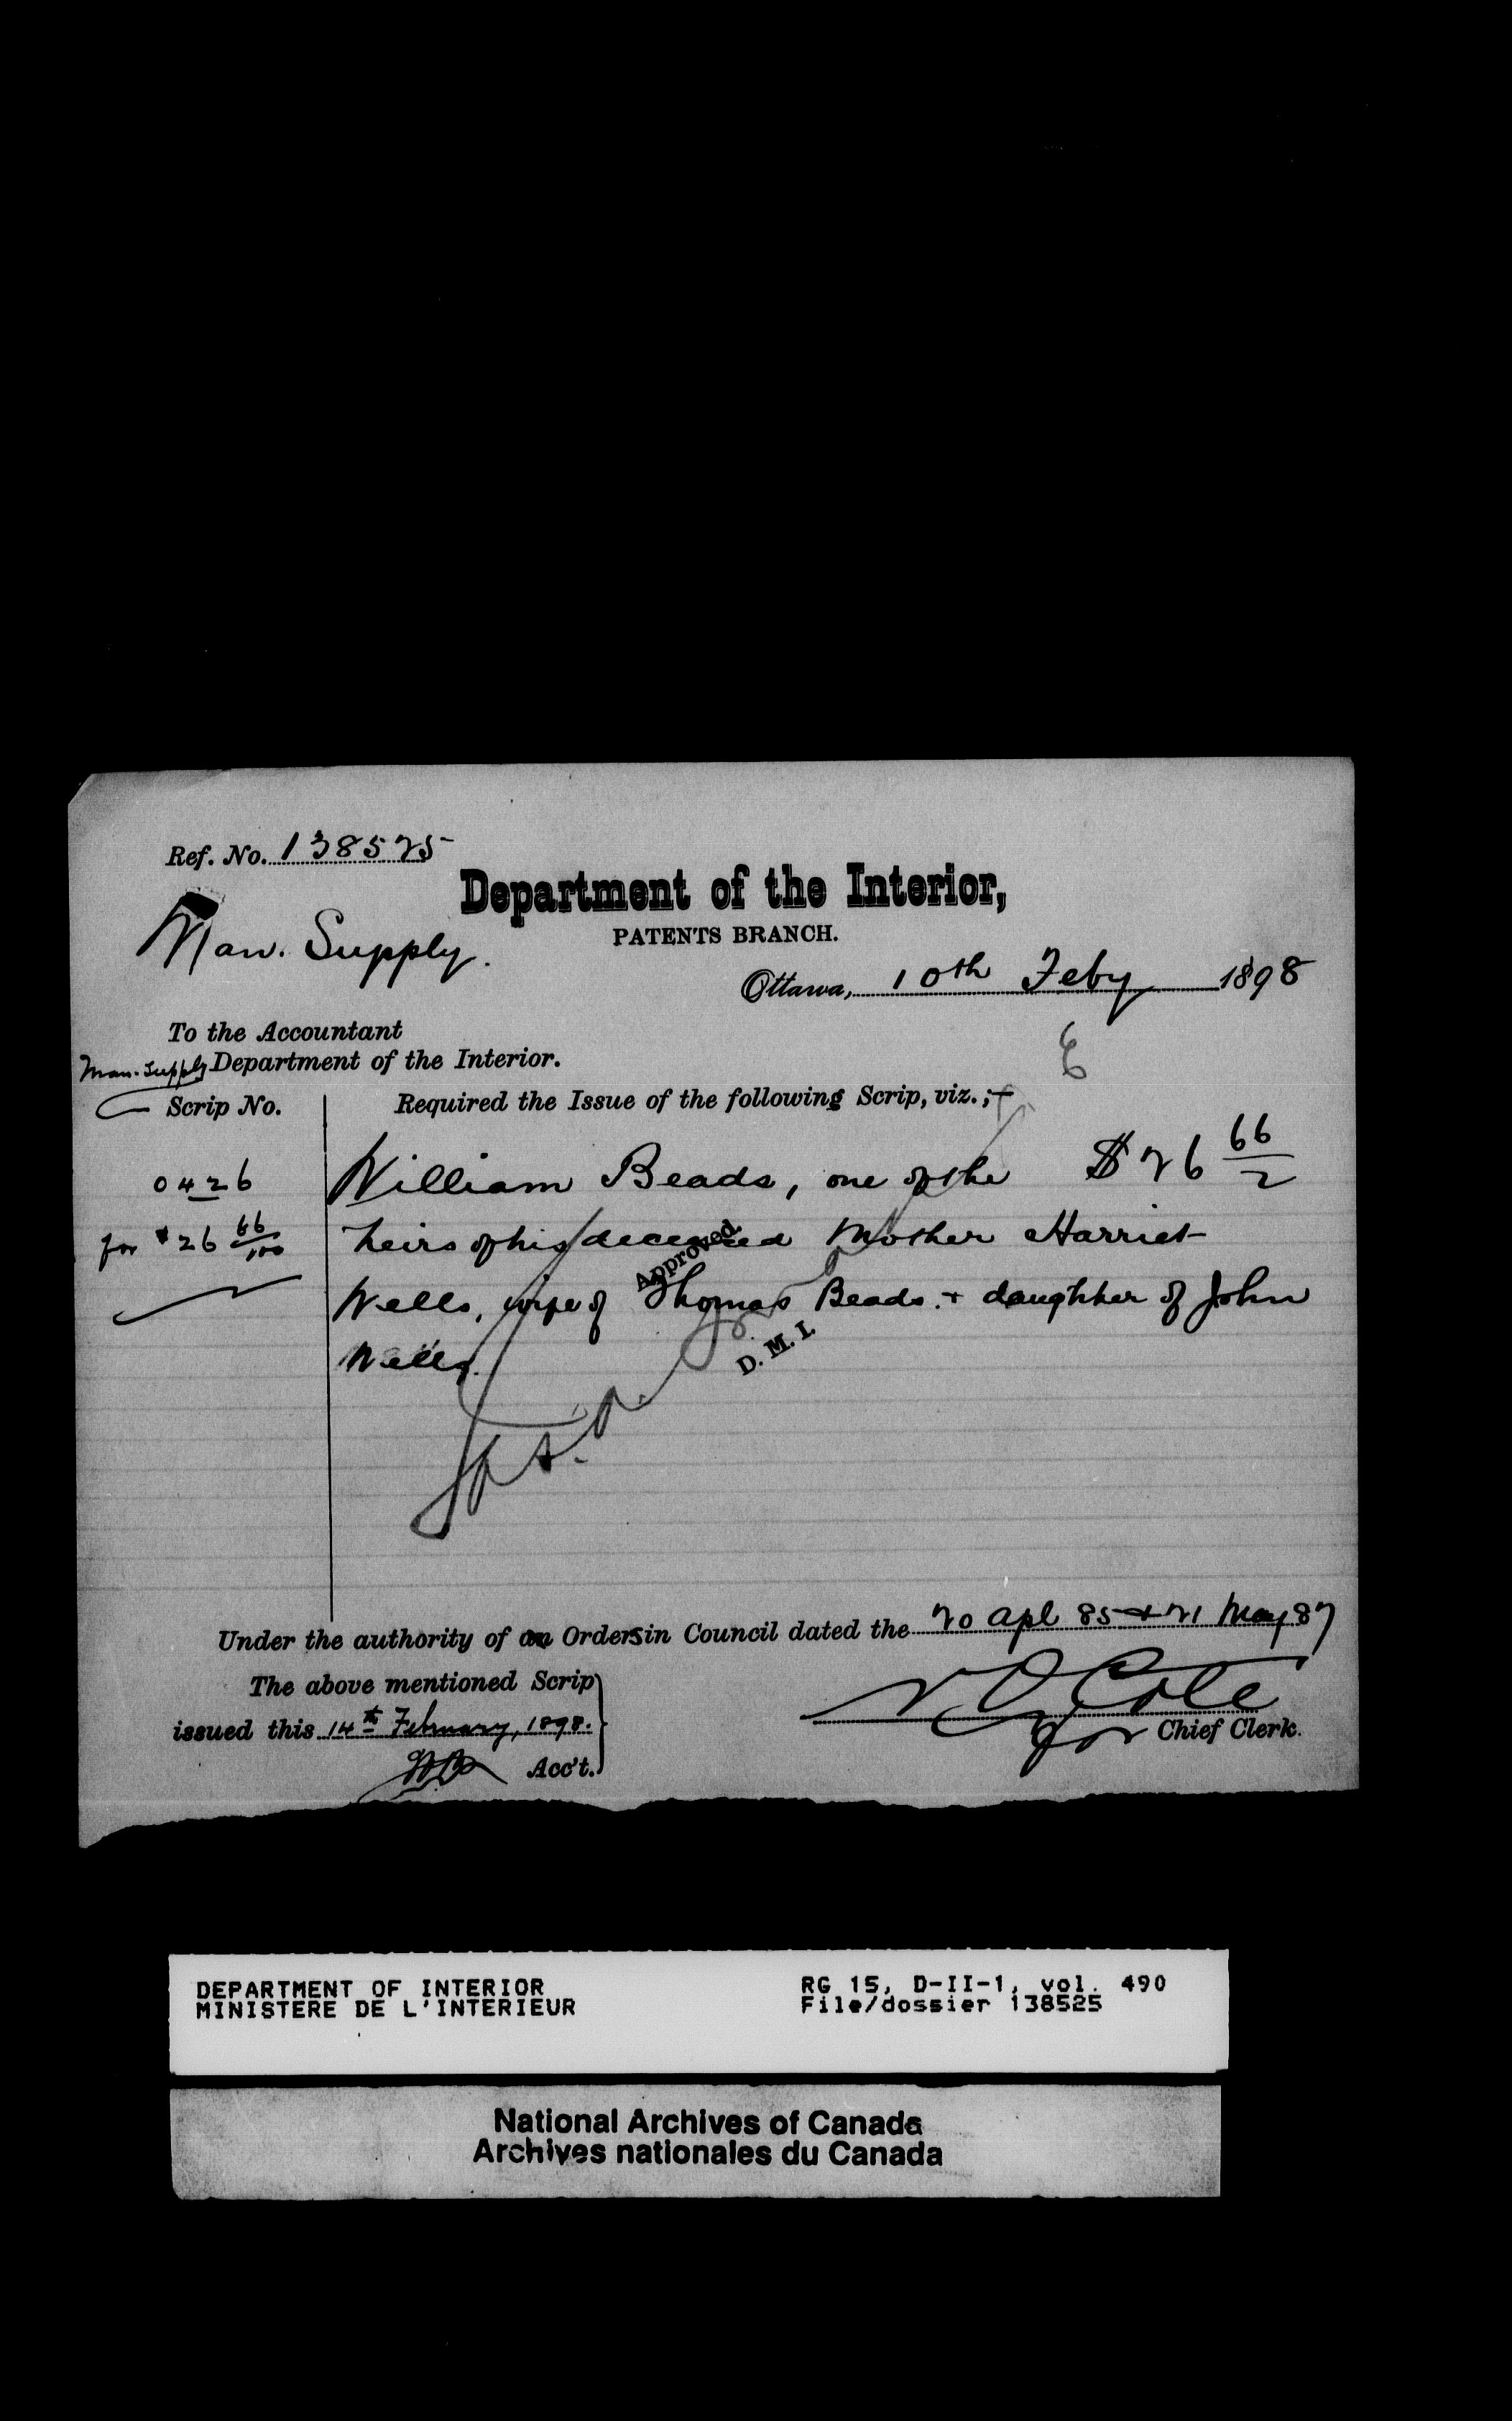 Ref. No. 138525
Department of the Interior,
Man. Supply.
PATENTS BRANCH.
Ottawa, 10th Feby 1898
To the Accountant
Man. Supply Department of the Interior.
Scrip No.
Required the Issue of the following Scrip, viz.;—
0426
William Beads, one of the $26 66/
for $26 66/100
heirs of his deceased Mother Harriet
Approved.
Wells, wife of Thomas Beads. + daughter of John
D. M. I.
Wells.
Under the authority of an Orders in Council dated the 20 apl 85 + 21 May 87
The above mentioned Scrip
issued this 14th February, 1898.
Cole
for Chief Clerk.
Acc't.
DEPARTMENT OF INTERIOR
MINISTERE DE L'INTERIEUR
RG 15, D-II-1, vol. 490
File/dossier 138525
National Archives of Canada
Archives nationales du Canada